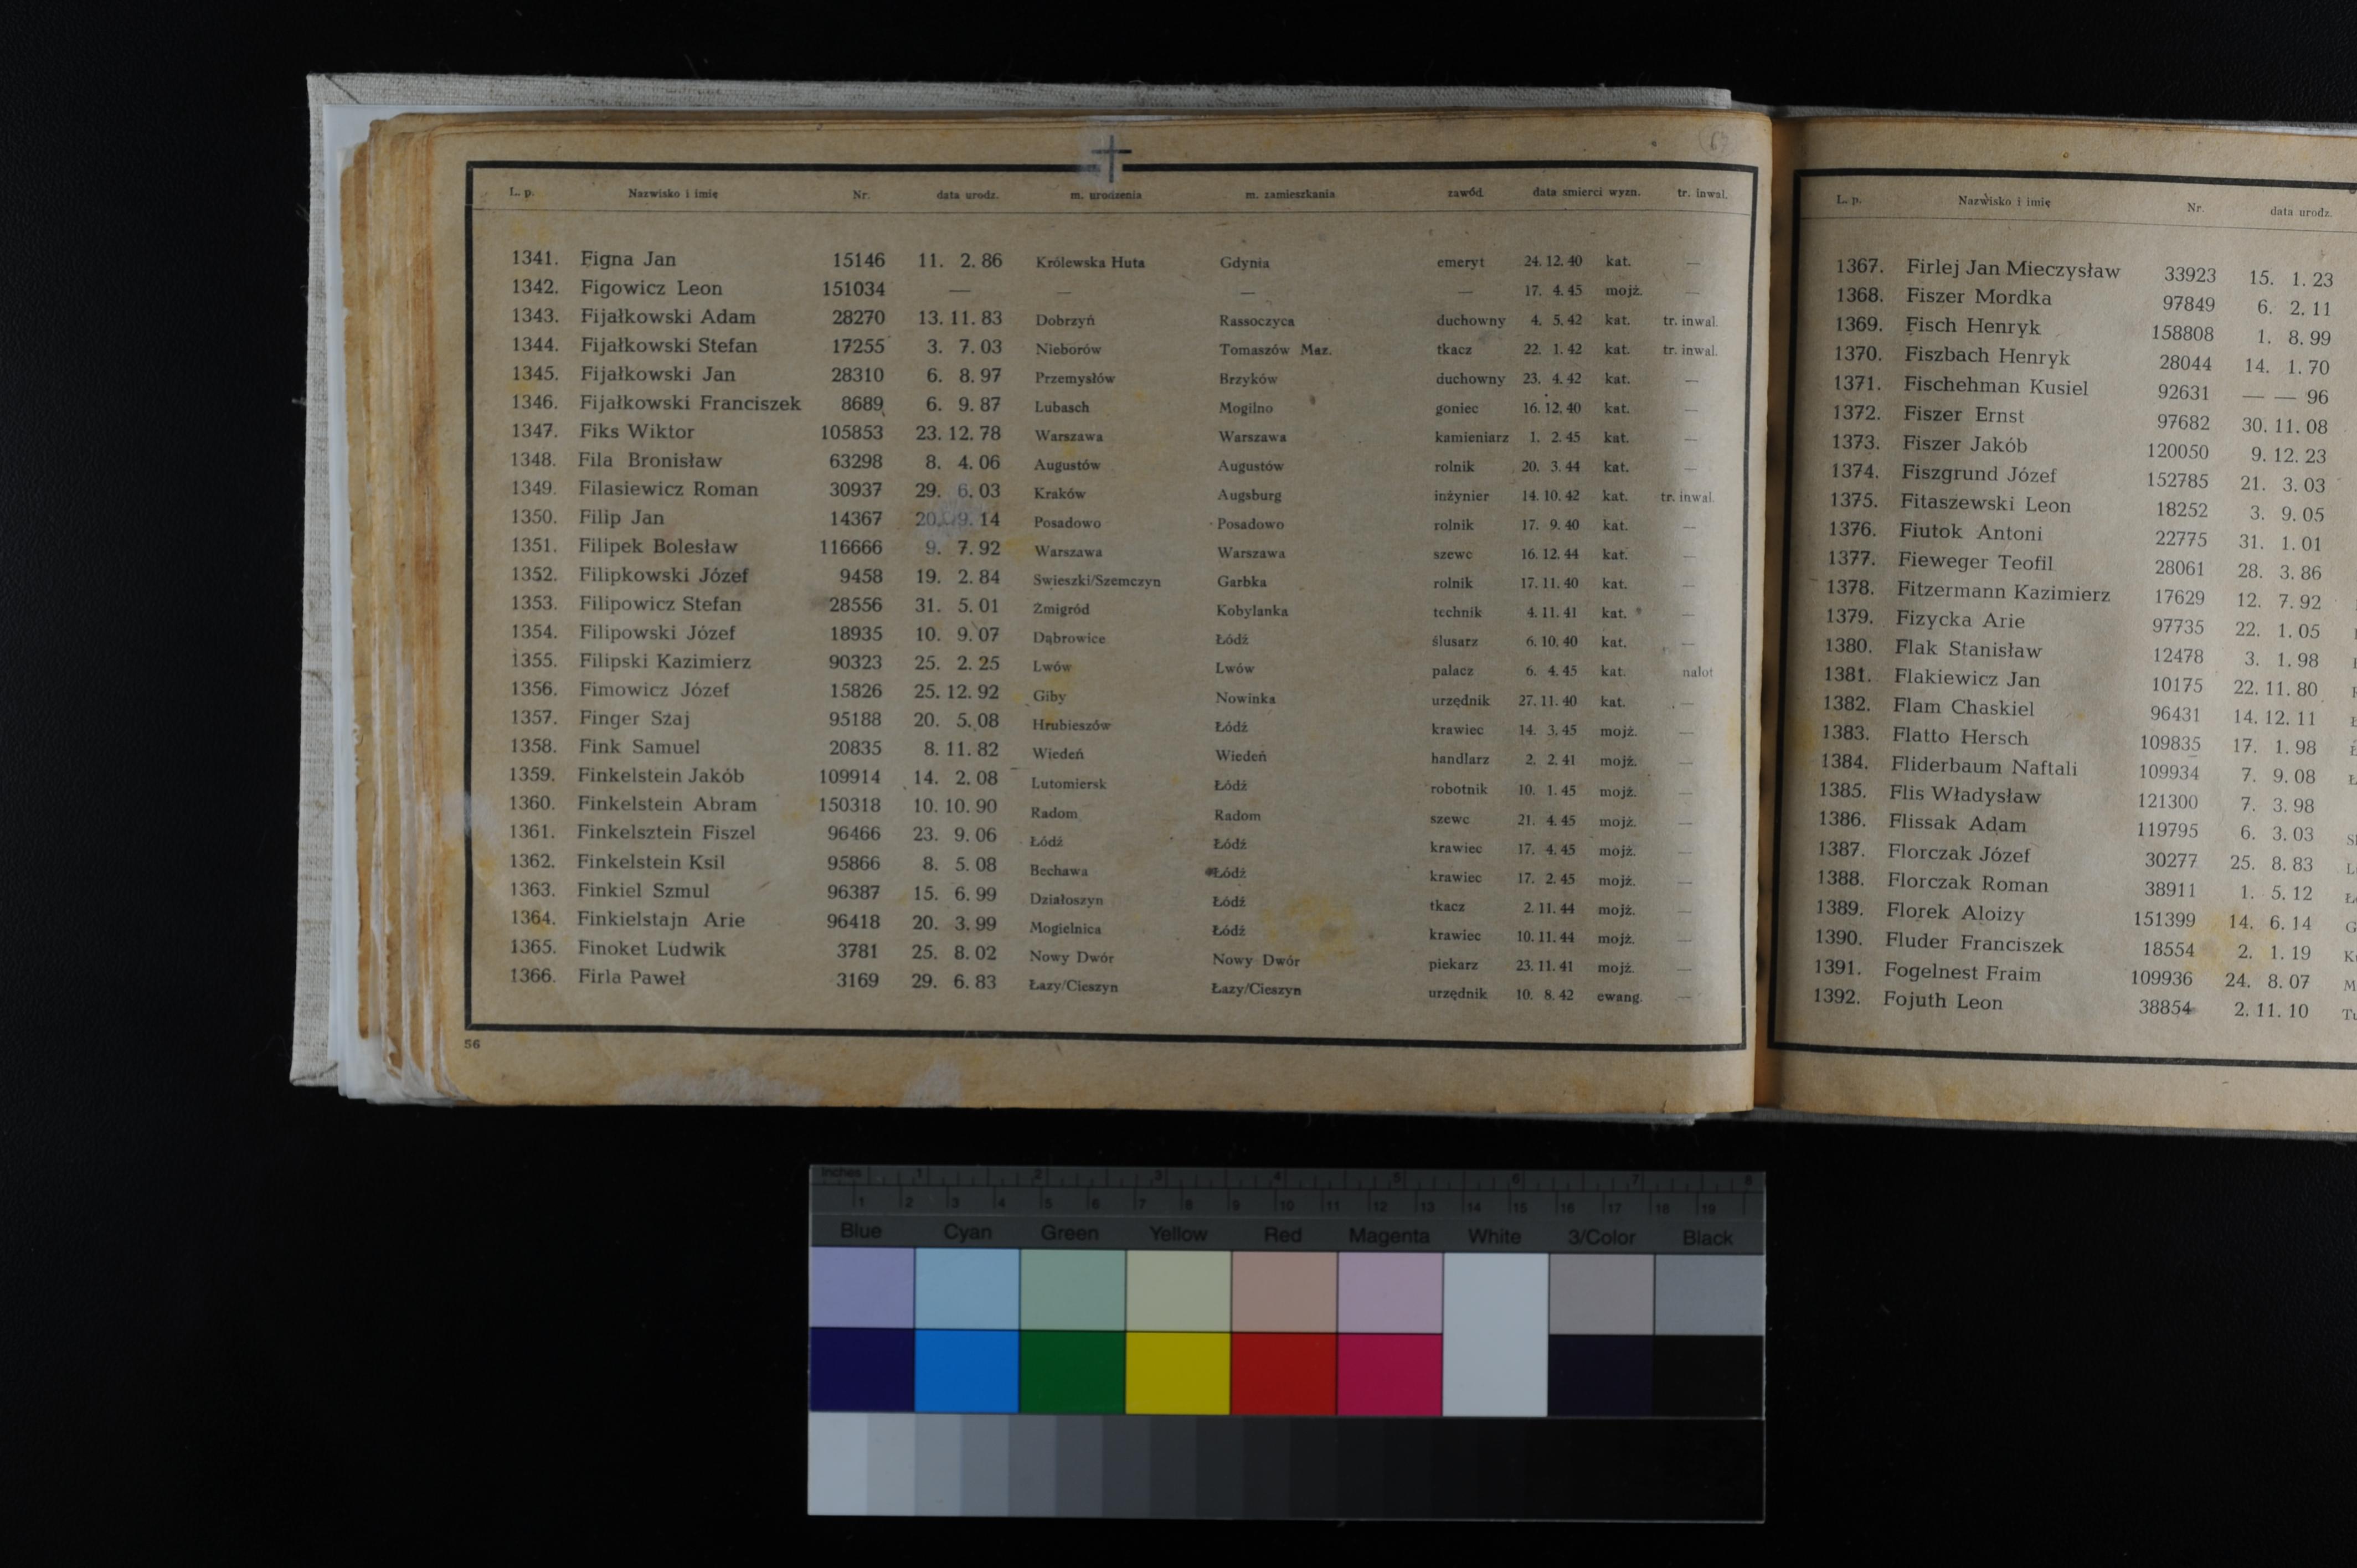 63
L. p. Nazwisko i imię Nr. data urodz. m. urodzenia m. zamieszkania zawód. data smierci wyzn. tr. inwal.
1341. Figna Jan 15146 11. 2. 86 Królewska Huta Gdynia emeryt 24. 12. 40 kat. —
1342. Figowicz Leon 151034 — — — — 17. 4. 45 mojż. —
1343. Fijałkowski Adam 28270 13. 11. 83 Dobrzyń Rassoczyca duchowny 4. 5. 42 kat. tr. inwal.
1344. Fijałkowski Stefan 17255 3. 7. 03 Nieborów Tomaszów Maz. tkacz 22. 1. 42 kat. tr. inwal.
1345. Fijałkowski Jan 28310 6. 8. 97 Przemysłów Brzyków duchowny 23. 4. 42 kat. —
1346. Fijałkowski Franciszek 8689 6. 9. 87 Lubasch Mogilno goniec 16. 12. 40 kat. —
1347. Fiks Wiktor 105853 23. 12. 78 Warszawa Warszawa kamieniarz 1. 2. 45 kat. —
1348. Fila Bronisław 63298 8. 4. 06 Augustów Augustów rolnik 20. 3. 44 kat. —
1349. Filasiewicz Roman 30937 29. 6. 03 Kraków Augsburg inżynier 14. 10. 42 kat. tr. inwal.
1350. Filip Jan 14367 20. 9. 14 Posadowo Posadowo rolnik 17. 9. 40 kat. —
1351. Filipek Bolesław 116666 9. 7. 92 Warszawa Warszawa szewc 16. 12. 44 kat. —
1352. Filipkowski Józef 9458 19. 2. 84 Swieszki/Szemczyn Garbka rolnik 17. 11. 40 kat. —
1353. Filipowicz Stefan 28556 31. 5. 01 Żmigród Kobylanka technik 4. 11. 41 kat. —
1354. Filipowski Józef 18935 10. 9. 07 Dąbrowice Łódź ślusarz 6. 10. 40 kat. —
1355. Filipski Kazimierz 90323 25. 2. 25 Lwów Lwów palacz 6. 4. 45 kat. nalot
1356. Fimowicz Józef 15826 25. 12. 92 Giby Nowinka urzędnik 27. 11. 40 kat. —
1357. Finger Szaj 95188 20. 5. 08 Hrubieszów Łódź krawiec 14. 3. 45 mojż. —
1358. Fink Samuel 20835 8. 11. 82 Wiedeń Wiedeń handlarz 2. 2. 41 mojż. —
1359. Finkelstein Jakób 109914 14. 2. 08 Lutomiersk Łódź robotnik 10. 1. 45 mojż. —
1360. Finkelstein Abram 150318 10. 10. 90 Radom Radom szewc 21. 4. 45 mojż. —
1361. Finkelsztein Fiszel 96466 23. 9. 06 Łódź Łódź krawiec 17. 4. 45 mojż. —
1362. Finkelstein Ksil 95866 8. 5. 08 Bechawa Łódź krawiec 17. 2. 45 mojż. —
1363. Finkiel Szmul 96387 15. 6. 99 Działoszyn Łódź tkacz 2. 11. 44 mojż. —
1364. Finkielstajn Arie 96418 20. 3. 99 Mogielnica Łódź krawiec 10. 11. 44 mojż. —
1365. Finoket Ludwik 3781 25. 8. 02 Nowy Dwór Nowy Dwór piekarz 23. 11. 41 mojż. —
1366. Firla Paweł 3169 29. 6. 83 Łazy/Cieszyn Łazy/Cieszyn urzędnik 10. 8. 42 ewang. —
56
L. p. Nazwisko i imię Nr. data urodz.
1367. Firlej Jan Mieczysław 33923 15. 1. 23
1368. Fiszer Mordka 97849 6. 2. 11
1369. Fisch Henryk 158808 1. 8. 99
1370. Fiszbach Henryk 28044 14. 1. 70
1371. Fischehman Kusiel 92631 — — 96
1372. Fiszer Ernst 97682 30. 11. 08
1373. Fiszer Jakób 120050 9. 12. 23
1374. Fiszgrund Józef 152785 21. 3. 03
1375. Fitaszewski Leon 18252 3. 9. 05
1376. Fiutok Antoni 22775 31. 1. 01
1377. Fieweger Teofil 28061 28. 3. 86
1378. Fitzermann Kazimierz 17629 12. 7. 92
1379. Fizycka Arie 97735 22. 1. 05
1380. Flak Stanisław 12478 3. 1. 98
1381. Flakiewicz Jan 10175 22. 11. 80
1382. Flam Chaskiel 96431 14. 12. 11
1383. Flatto Hersch 109835 17. 1. 98
1384. Fliderbaum Naftali 109934 7. 9. 08
1385. Flis Władysław 121300 7. 3. 98
1386. Flissak Adam 119795 6. 3. 03
1387. Florczak Józef 30277 25. 8. 83
1388. Florczak Roman 38911 1. 5. 12
1389. Florek Aloizy 151399 14. 6. 14
1390. Fluder Franciszek 18554 2. 1. 19
1391. Fogelnest Fraim 109936 24. 8. 07
1392. Fojuth Leon 38854 2. 11. 10
Inches 1 2 3 4 5 6 7 8
1 2 3 4 5 6 7 8 9 10 11 12 13 14 15 16 17 18 19
Blue Cyan Green Yellow Red Magenta White 3/Color Black